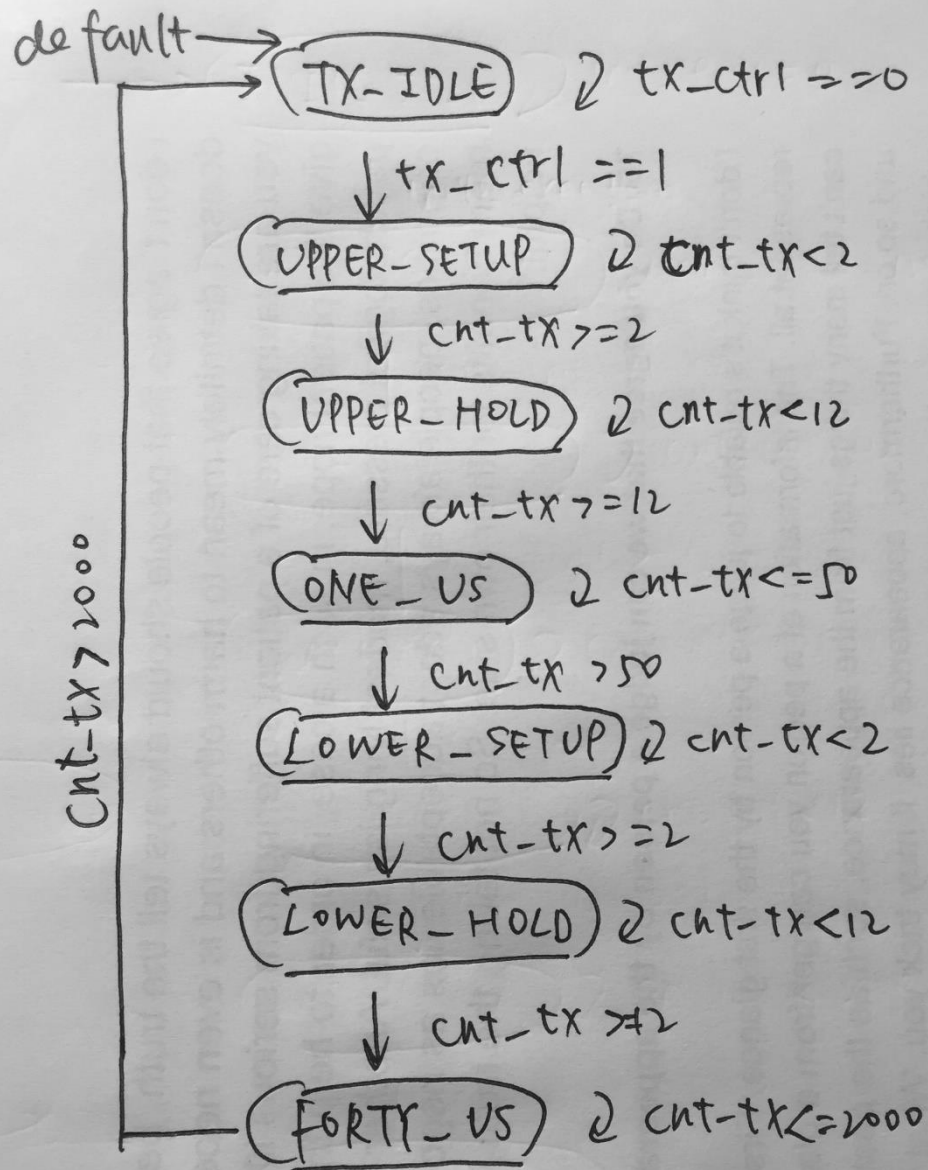 default
TX_IDLE tx_ctrl==0
tx_ctrl==1
UPPER_SETUP cnt_tx<2
cnt_tx>=2
UPPER_HOLD cnt_tx<12
cnt_tx>=12
ONE_US cnt_tx<=50
cnt_tx>50
LOWER_SETUP cnt_tx<2
cnt_tx>=2
LOWER_HOLD cnt_tx<12
cnt_tx
FORTY_US cnt_tx<=2000
Cnt_tx>2000